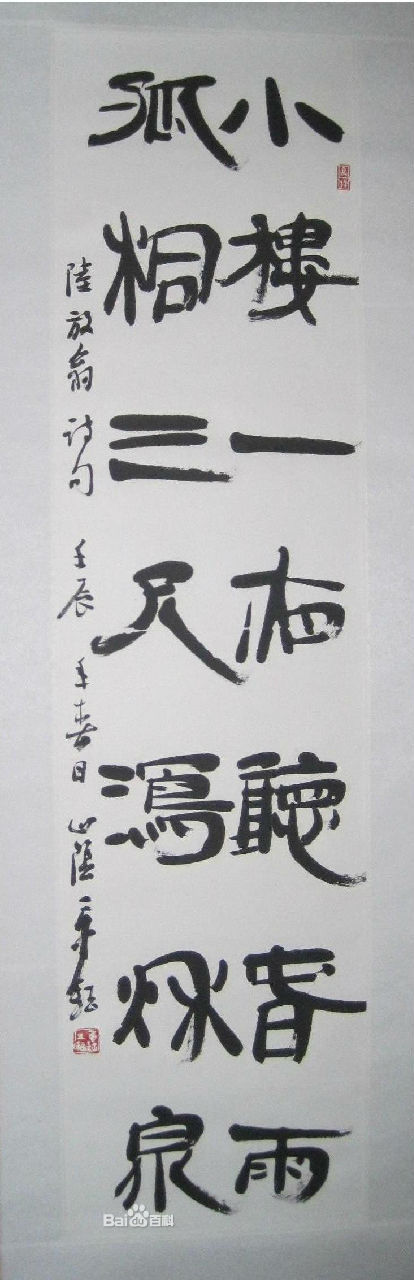 小樓一夜聽春雨
孤桐三尺瀉秌泉
陸放翁詩句 壬辰年春日 山陰
Bai百科